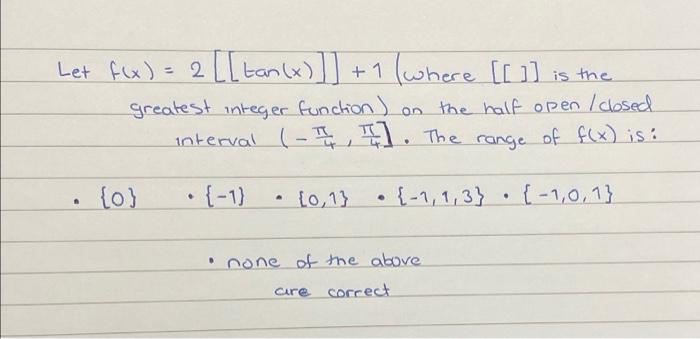 Let f(x) = 2 [[tan(x)]] + 1 (where [[ ]] is the
greatest integer function) on the half open/closed
interval (-π/4, π/4]. The range of f(x) is:
• {0} • {-1} • {0,1} • {-1,1,3} • {-1,0,1}
• none of the above
are correct